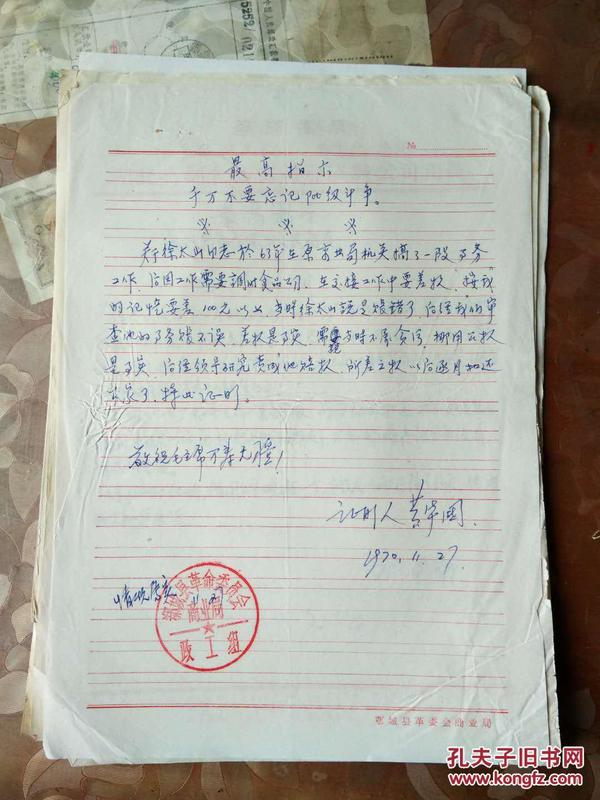 №
最高指示
千万不要忘记阶级斗争。
关于徐太山同志於63年在原京业局机关搞了一段财务
工作,后因工作需要调对食品公司,在交接工作中要差款,按我
的记忆要差100元以上,当时徐太山说是赔错了,后经我们审
查他的财务账不误,差款是事实,当时不属贪污,挪用公款
是事实,后经领导研究责成他赔款,所差之款以后逐月扣还
公家了,特此证明。
敬祝毛主席万寿无疆!
证明人 黄 国
1970.11.27
情况属实
革命委员会
商业局
政工组
城县革委会商业局
孔夫子旧书网
www.kongfz.com